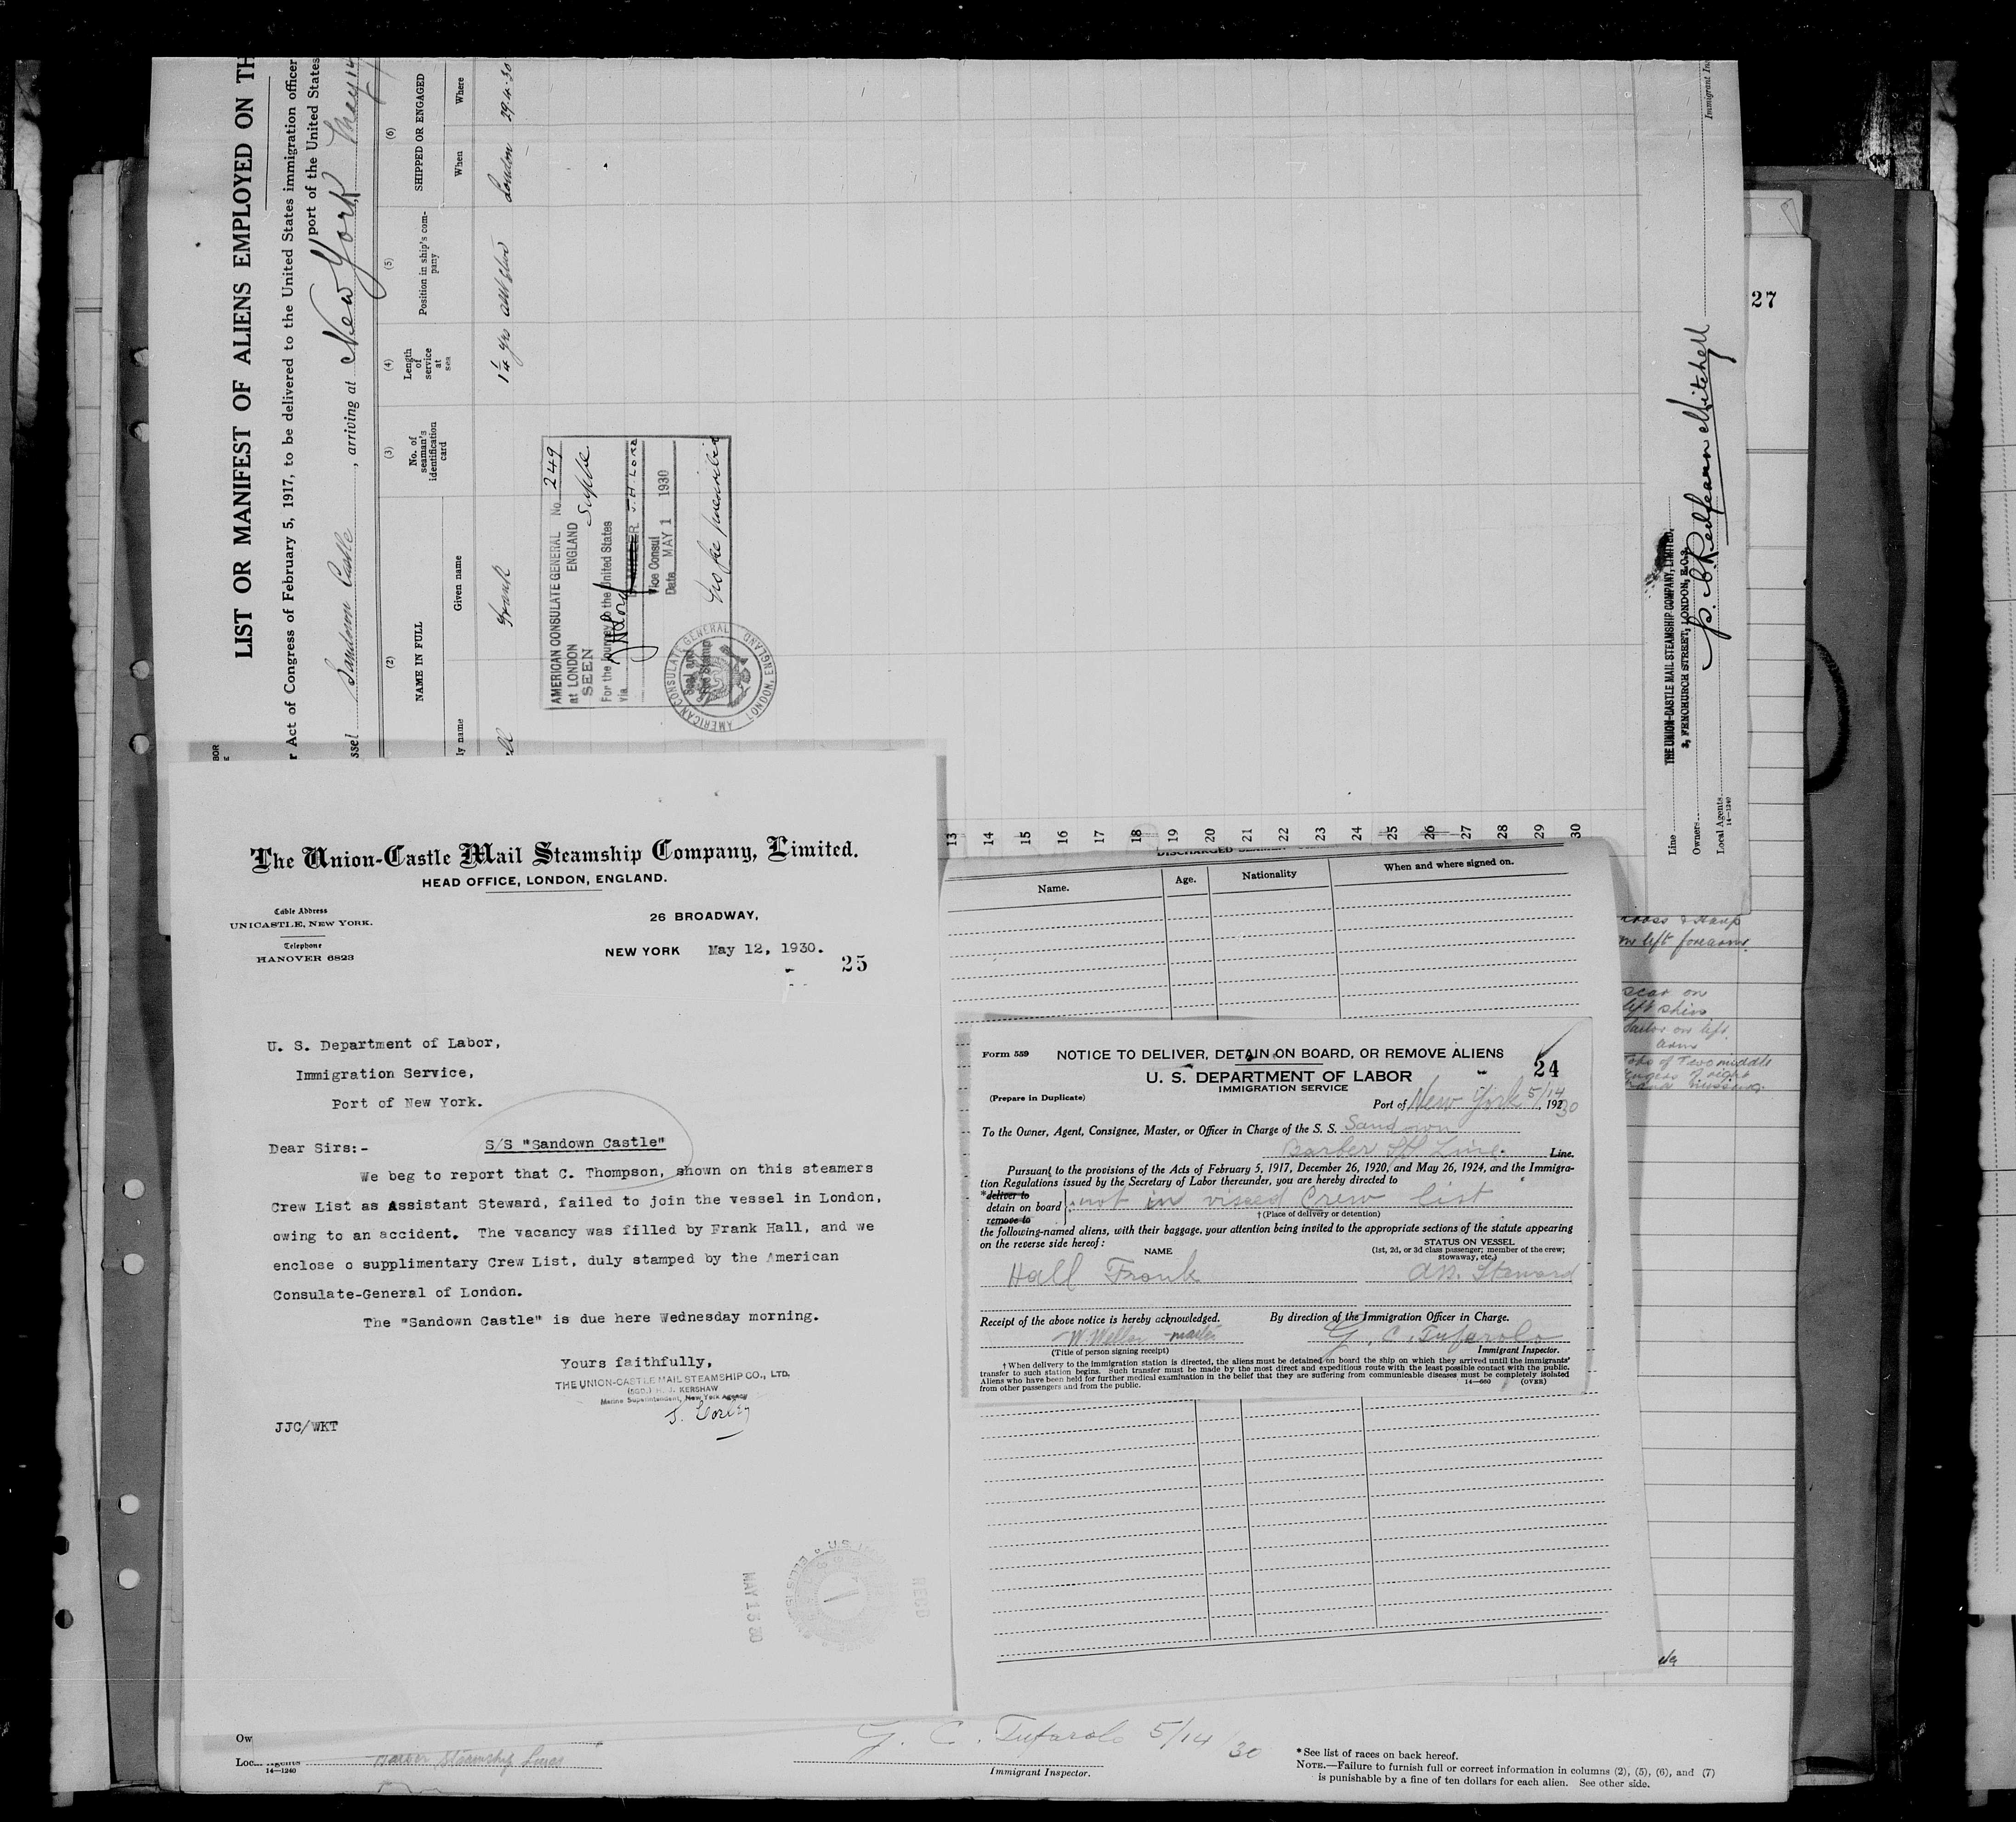 LIST OR MANIFEST OF ALIENS EMPLOYED ON TH
r Act of Congress of February 5, 1917, to be delivered to the United States immigration officer
port of the United States
ssel Sandown Castle, arriving at New York May 14
(2) (3) (4) (5) (6)
NAME IN FULL
ly name Given name
No. of seaman's identification card
Length of service at sea
Position in ship's company
SHIPPED OR ENGAGED
When Where
ll Frank 1¼ yrs London 29.4.30
AMERICAN CONSULATE GENERAL No. 249
at LONDON ENGLAND
SEEN
For the journey to the United States
via
J. H. LORD
Vice Consul
Date MAY 1 1930
No fee prescribed
AMERICAN CONSULATE GENERAL LONDON, ENGLAND
13 14 15 16 17 18 19 20 21 22 23 24 25 26 27 28 29 30
THE UNION-CASTLE MAIL STEAMSHIP COMPANY, LIMITED.
3, FENCHURCH STREET, LONDON, E.C.3.
Line
Owners
Local Agents
14—1240
Immigrant In
27
The Union-Castle Mail Steamship Company, Limited.
HEAD OFFICE, LONDON, ENGLAND.
Cable Address
UNICASTLE, NEW YORK.
Telephone
HANOVER 6823
26 BROADWAY,
NEW YORK May 12, 1930.
25
U. S. Department of Labor,
Immigration Service,
Port of New York.
Dear Sirs:- S/S "Sandown Castle"
We beg to report that C. Thompson, shown on this steamers
Crew List as Assistant Steward, failed to join the vessel in London,
owing to an accident. The vacancy was filled by Frank Hall, and we
enclose o supplimentary Crew List, duly stamped by the American
Consulate-General of London.
The "Sandown Castle" is due here Wednesday morning.
Yours faithfully,
THE UNION-CASTLE MAIL STEAMSHIP CO., LTD.
(SGD.) H. J. KERSHAW
Marine Superintendent, New York Agency
JJC/WKT
MAY 13 30
RECD
DISCHARGED SEAMEN
Name. Age. Nationality When and where signed on.
Form 559
NOTICE TO DELIVER, DETAIN ON BOARD, OR REMOVE ALIENS
24
U. S. DEPARTMENT OF LABOR
IMMIGRATION SERVICE
(Prepare in Duplicate)
Port of New York 5/14, 19230
To the Owner, Agent, Consignee, Master, or Officer in Charge of the S. S. Sandown
Barber SS. Line. Line.
Pursuant to the provisions of the Acts of February 5, 1917, December 26, 1920, and May 26, 1924, and the Immigra-
tion Regulations issued by the Secretary of Labor thereunder, you are hereby directed to
*deliver to
detain on board
remove to
not in visaed Crew list
†(Place of delivery or detention)
the following-named aliens, with their baggage, your attention being invited to the appropriate sections of the statute appearing
on the reverse side hereof:
NAME
STATUS ON VESSEL
(1st, 2d, or 3d class passenger; member of the crew;
stowaway, etc.)
Hall Frank Ass. Steward
Receipt of the above notice is hereby acknowledged. By direction of the Immigration Officer in Charge.
W. Weller master
G. C. Tufarolo
(Title of person signing receipt) Immigrant Inspector.
†When delivery to the immigration station is directed, the aliens must be detained on board the ship on which they arrived until the immigrants'
transfer to such station begins. Such transfer must be made by the most direct and expeditious route with the least possible contact with the public.
Aliens who have been held for further medical examination in the belief that they are suffering from communicable diseases must be completely isolated
from other passengers and from the public.
14—660 (OVER)
left forearm.
scar on
left shin
on left
arm
of Two middle
fingers of right
hand missing.
Ow
Loc agents Barber Steamship Lines
14—1240
G. C. Tufarolo 5/14/30
Immigrant Inspector.
*See list of races on back hereof.
NOTE.—Failure to furnish full or correct information in columns (2), (5), (6), and (7)
is punishable by a fine of ten dollars for each alien. See other side.